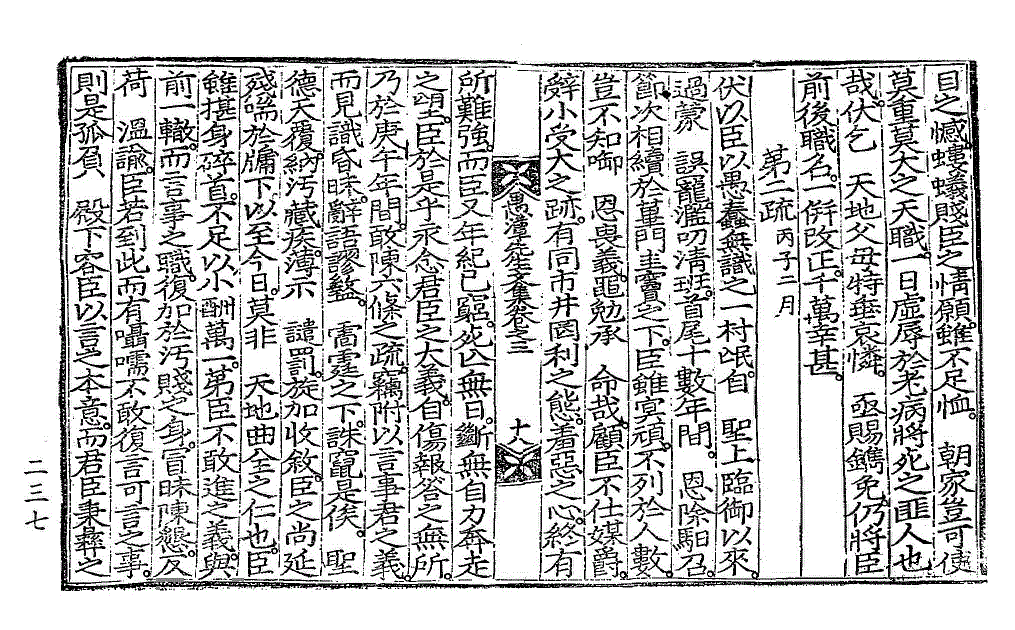 目之憾螻蟻賤臣之情願雖不足恤 朝家豈可使
莫重莫大之天職一日虛辱於老病將死之匪人也
哉伏乞 天地父母特垂哀憐 亟賜鐫免仍將臣
前後職名一倂改正千萬幸甚
第二疏丙子二月
伏以臣以愚蠢無識之一村氓自 聖上臨御以來
過蒙 誤寵濫叨淸班首尾十數年間 恩除馹召
節次相續於蓽門圭竇之下臣雖冥頑不列於人數
豈不知啣 恩畏義黽勉承 命哉顧臣不仕媒爵
辭小受大之跡有同市井罔利之態羞惡之心終有
愚潭先生文集卷之三 十八
所難強而臣又年紀已窮死亡無日斷無自力奔走
之望臣於是乎永念君臣之大義自傷報答之無所
乃於庚午年間敢陳六條之疏竊附以言事君之義
而見識昏昧辭語謬盭 雷霆之下誅竄是俟 聖
德天覆納汚藏疾薄示 譴罰旋加收敘臣之尙延
殘喘於牖下以至今日莫非 天地曲全之仁也臣
雖揕身碎首不足以小酬萬一第臣不敢進之義與
前一轍而言事之職復加於汚賤之身冒昧陳懇反
荷 溫諭臣若到此而有囁嚅不敢復言可言之事
則是孤負 殿下容臣以言之本意而君臣秉彝之
二三七